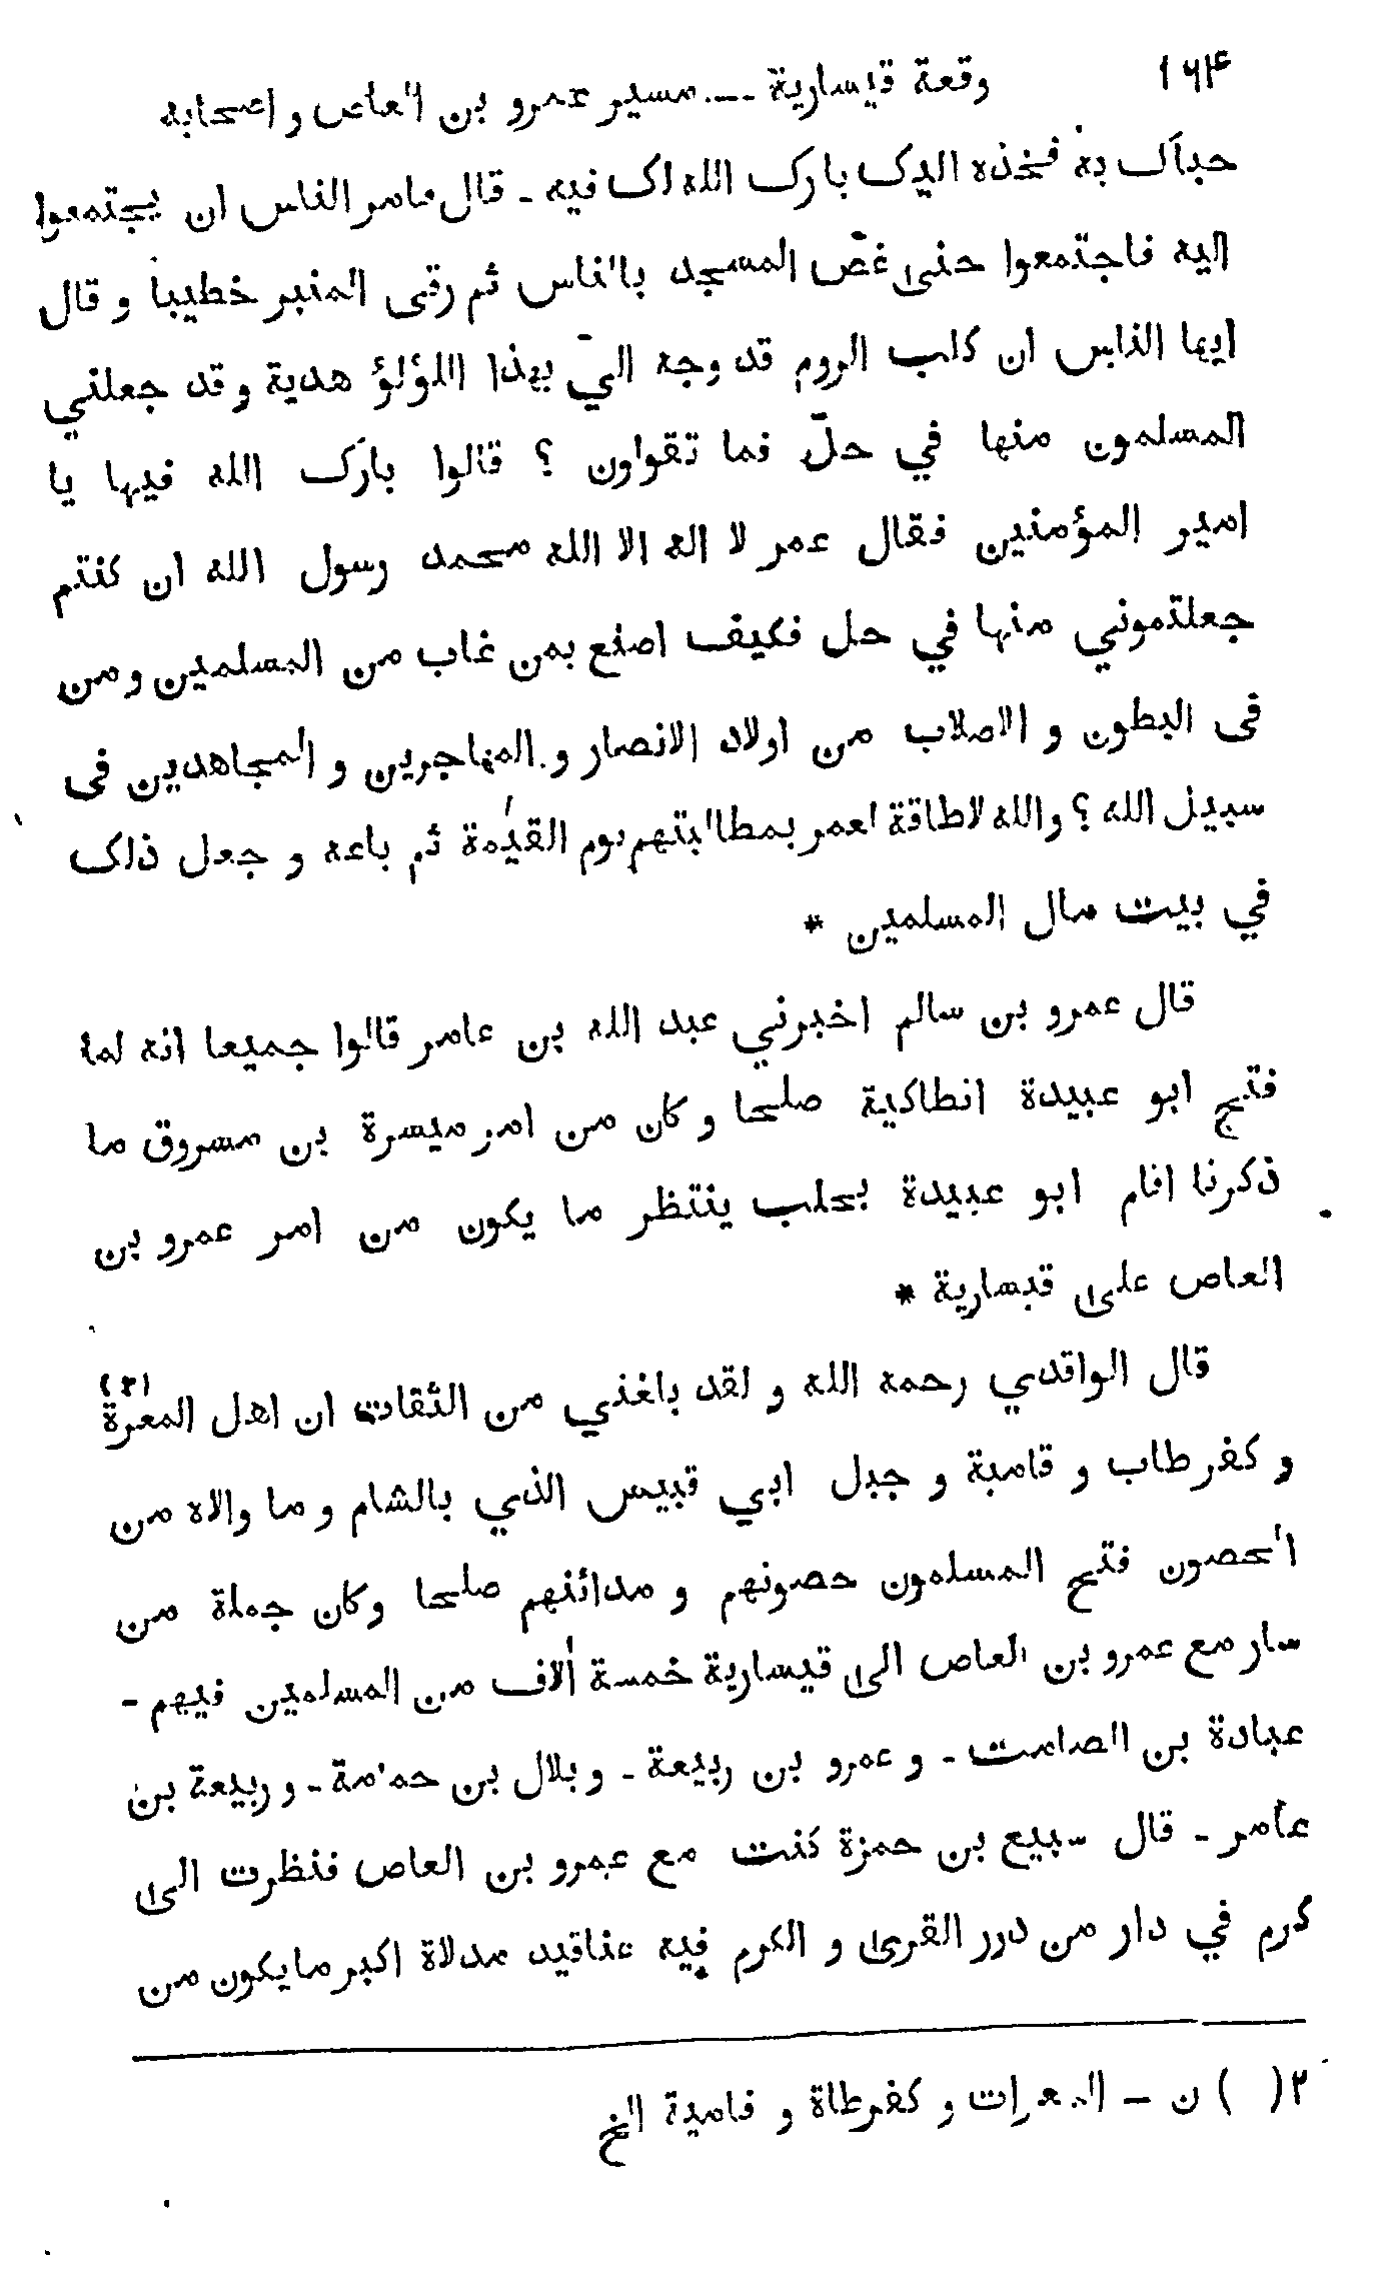 ١٦٤ وقعة قيسارية ــ مسير عمرو بن العاص و اصحابه
حباك به فخذه اليك بارك الله لك فيه - قال فامر الناس ان يجتمعوا
اليه فاجتمعوا حتى غصّ المسجد بالناس ثم رقى المنبر خطيبا و قال
ايها الناس ان كلب الروم قد وجه اليّ بهذا اللؤلؤ هدية و قد جعلني
المسلمون منها في حلّ فما تقولون ؟ قالوا بارك الله فيها يا
امير المؤمنين فقال عمر لا اله الا الله محمد رسول الله ان كنتم
جعلتموني منها في حل فكيف اصنع بمن غاب من المسلمين و من
فى البطون و الاصلاب من اولاد الانصار و المهاجرين و المجاهدين فى
سبيل الله ؟ والله لاطاقة لعمر بمطالبتهم يوم القيٰمة ثم باعه و جعل ذلك
في بيت مال المسلمين *
قال عمرو بن سالم اخبرني عبد الله بن عامر قالوا جميعا انه لما
فتح ابو عبيدة انطاكية صلحا و كان من امر ميسرة بن مسروق ما
ذكرنا اقام ابو عبيدة بحلب ينتظر ما يكون من امر عمرو بن
العاص على قيسارية *
قال الواقدي رحمه الله و لقد بلغني من الثقات ان اهل المعرة (٢)
و كفر طاب و قامية و جبل ابي قبيس الذي بالشام و ما والاه من
الحصون فتح المسلمون حصونهم و مدائنهم صلحا و كان جملة من
سار مع عمرو بن العاص الى قيسارية خمسة آلاف من المسلمين فيهم -
عبادة بن الصامت - و عمرو بن ربيعة - و بلال بن حمامة - و ربيعة بن
عامر - قال سبيع بن حمزة كنت مع عمرو بن العاص فنظرت الى
كرم في دار من درر القرى و الكرم فيه عناقيد مدلاة اكبر ما يكون من
( ٢ ) ن ــ المعرات و كفرطاة و فامية الخ